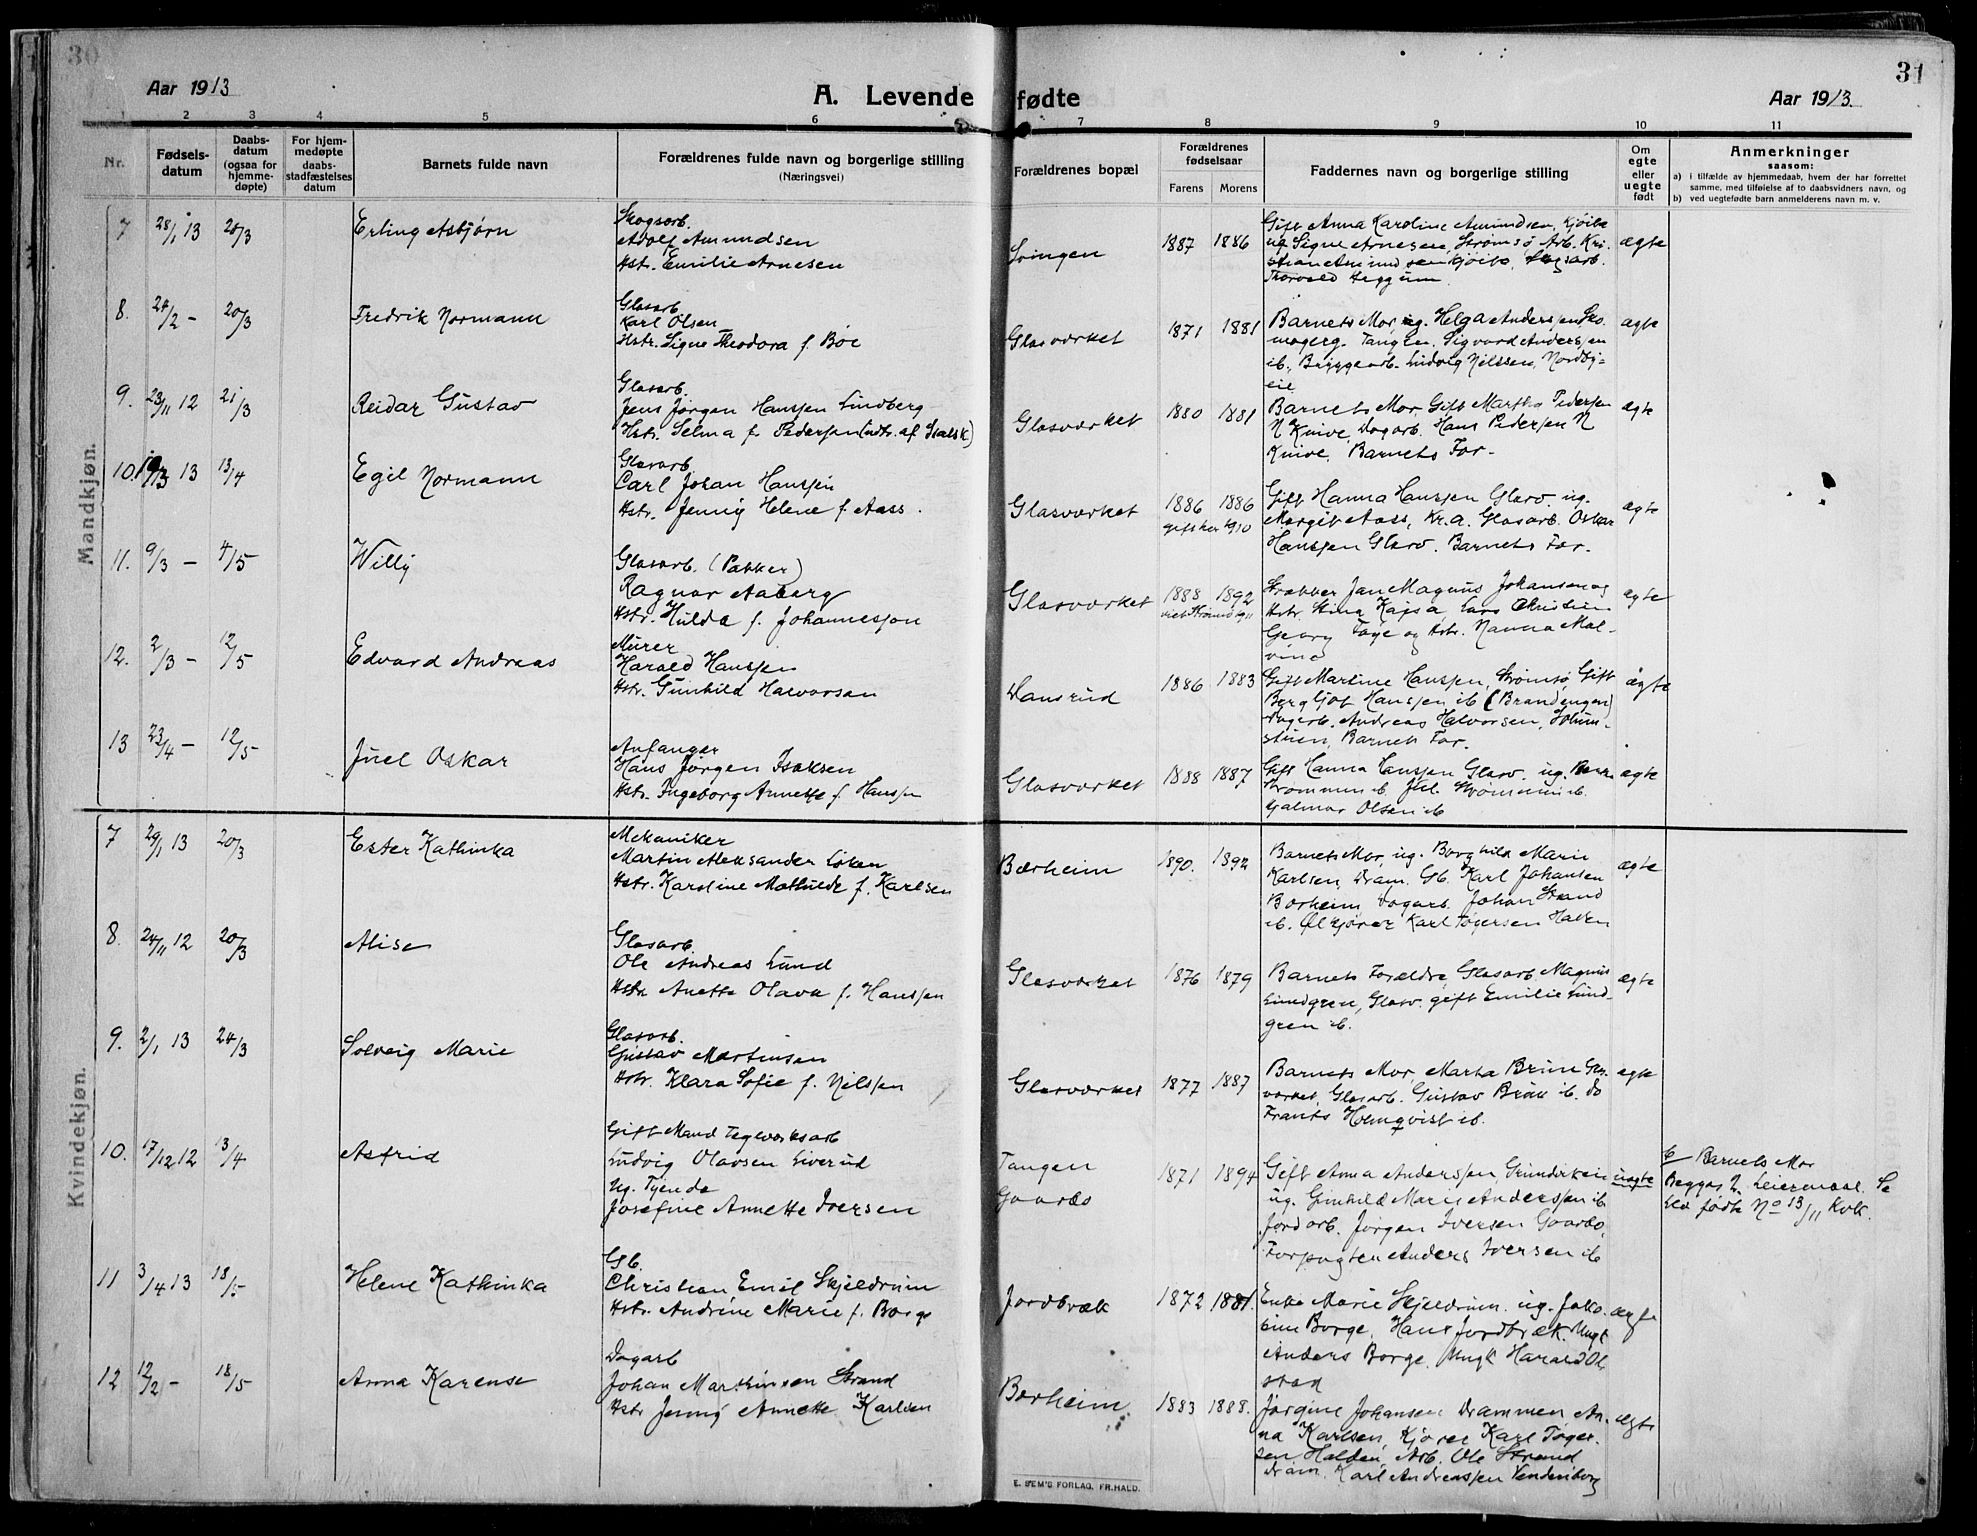 30
31
Aar 1913
A. Levende fødte
Aar 1913.
1 2 3 4 5 6 7 8 9 10 11
Nr.
Fødsels-
datum
Daabs-
datum
(ogsaa for
hjemme-
døpte)
For hjem-
medøpte
daabs-
stadfæstelses
datum
Barnets fulde navn
Forældrenes fulde navn og borgerlige stilling
(Næringsvei)
Forældrenes bopæl
Forældrenes
fødselsaar
Farens Morens
Faddernes navn og borgerlige stilling
Om
egte
eller
uegte
født
Anmerkninger
saasom:
a) i tilfælde av hjemmedaab, hvem der har forrettet
samme, med tilføielse af to daabsvidners navn, og
b) ved uegtefødte barn anmelderens navn m. v.
Mandkjøn.
7 28/1 13 20/3 Erling Asbjørn
Skogsarb.
Adolf Amundsen
Hstr. Emilie Arnesen
Svingen 1887 1886
Gift Anna Karoline Amundsen, Kjøibe
ug. Signe Arnesen Strømsø Arb. Kri-
stian Amundsen Kjøibe, Skogsarb.
Thorvald Heggum.
ægte
8. 24/2 – 20/3 Fredrik Normann
Glasarb.
Karl Olsen
Hstr. Signe Theodora f. Bøe
Glasværket 1871 1881
Barnets Mor, ug. Helga Anderssen Sko-
magerg. Tangen, Sigvard Anderssen
ib., Bryggearb. Ludvig Nilssen, Nordby-
eie
ægte
9. 23/11 12 21/3 Reidar Gustav
Glasarb.
Jens Jørgen Hanssen Lindberg
Hstr. Selma f. Pederssen (udtr. af Statsk)
Glasværket 1880 1881
Barnets Mor, Gift Martha Pedersen
N Knive, Dagarb. Hans Pedersen N
Knive, Barnets Far.
ægte
10. 13 13/4 Egil Normann
Glasarb.
Carl Johan Hanssen
Hstr. Jenny Helene f. Aass.
Glasværket 1886 1886
gift her 1910
Gift Hanna Hanssen Glasv. ug.
Margit Aass, Kr.a. Glasarb. Oskar
Hanssen Glasv. Barnets Far.
ægte
11. 9/3 – 4/5 Willy
Glasarb. (Pakker)
Ragnar Aaberg
Hstr. Hulda f. Johannessen
Glasværket 1888 1892
Strækker Jan Magnus Johansen og
Hstr. Stina Kajsa Lars Christian
Georg Faye og Hstr. Nanna Mal-
vina
ægte
12. 2/3 – 12/5 Edvard Andreas
Murer
Harald Hanssen
Hstr. Gunhild Halvorsen
Dansrud 1886 1883
Gift Martine Hanssen, Strømsø, Gift
Bergljot Hanssen ib (Brandengen)
Dagarb. Andreas Halvorsen,
Barnets Far.
ægte
13 23/4 – 12/5 Juel Oskar
Anfanger
Hans Jørgen Isaksen
Hstr. Ingeborg Annette f. Hanssen
Glasværket 1888 1887
Gift Hanna Hanssen Glasv. ug.
Strømmen ib Jul. Strømmen ib.
Hjalmar Olsen ib
ægte
Kvindekjøn.
7 29/1 13 20/3 Ester Kathinka
Mekaniker
Martin Aleksander Løken
Hstr. Karoline Mathilde f. Karlsen
Bærheim 1890. 1892
Barnets Mor, ug. Borghild Marie
Karlsen, Dram. Gb. Karl Johansen
Borheim, Dagarb. Johan Strand
ib. Ølkjører Karl Tøgersen Hallen
ægte
8. 24/11 12 20/3 Alise
Glasarb.
Ole Andreas Lund
Hstr Anette Olava f. Hanssen
Glasværket 1876 1879
Barnets Forældre, Glasarb. Magnus
Lundgren, Glasv. gift Emilie Lund-
gren ib.
ægte
9. 2/1 13 24/3 Solveig Marie
Glasarb.
Gustav Martinsen
Hstr. Klara Sofie f. Nilssen
Glasværket 1877 1887
Barnets Mor, Marta Bruu Glas-
værket, Glasarb. Gustav Bruu ib. do
Frants Holmqvist ib.
egte
10. 17/12 12 13/4 Astrid
Gift Mand Teglverksarb
Ludvig Olavsen Liverud
Ug. Tjende
Josefine Annette Iversen
Tangen
Gaarås
1871 1894
Gift Anna Anderssen,
ug. Gunhild Marie Anderssen ib.
Jordarb. Jørgen Iversen Gaarås,
Forpagter Anders Iversen ib
uægte
Barnets Mor
Begges 2. Leiermaal. Se
lev. fødte No 13/11 Kvk.
11 3/4 13 18/5 Helene Kathinka
Gb.
Christian Emil Skjeldrum
Hstr. Andrine Marie f. Borge
Jordbræk 1872 1881.
Enke Marie Skjeldrum. ug. Jako-
bine Borge, Hans Jordbræk. Ungk
Anders Borge, Ungk Harald Ol-
stad
ægte
12 12/2 – 18/5 Anna Karense
Dagarb
Johan Marthinsen Strand
Hstr Jenny Annette Karlsen
Borheim 1883 1888.
Jørgine Johansen Drammen, An-
na Karlsen, Kjører Karl Tøger-
sen Halden, Arb. Ole Strand
Dram. Karl Andreassen
ægte
E. SEM'S FORLAG, FR.HALD.